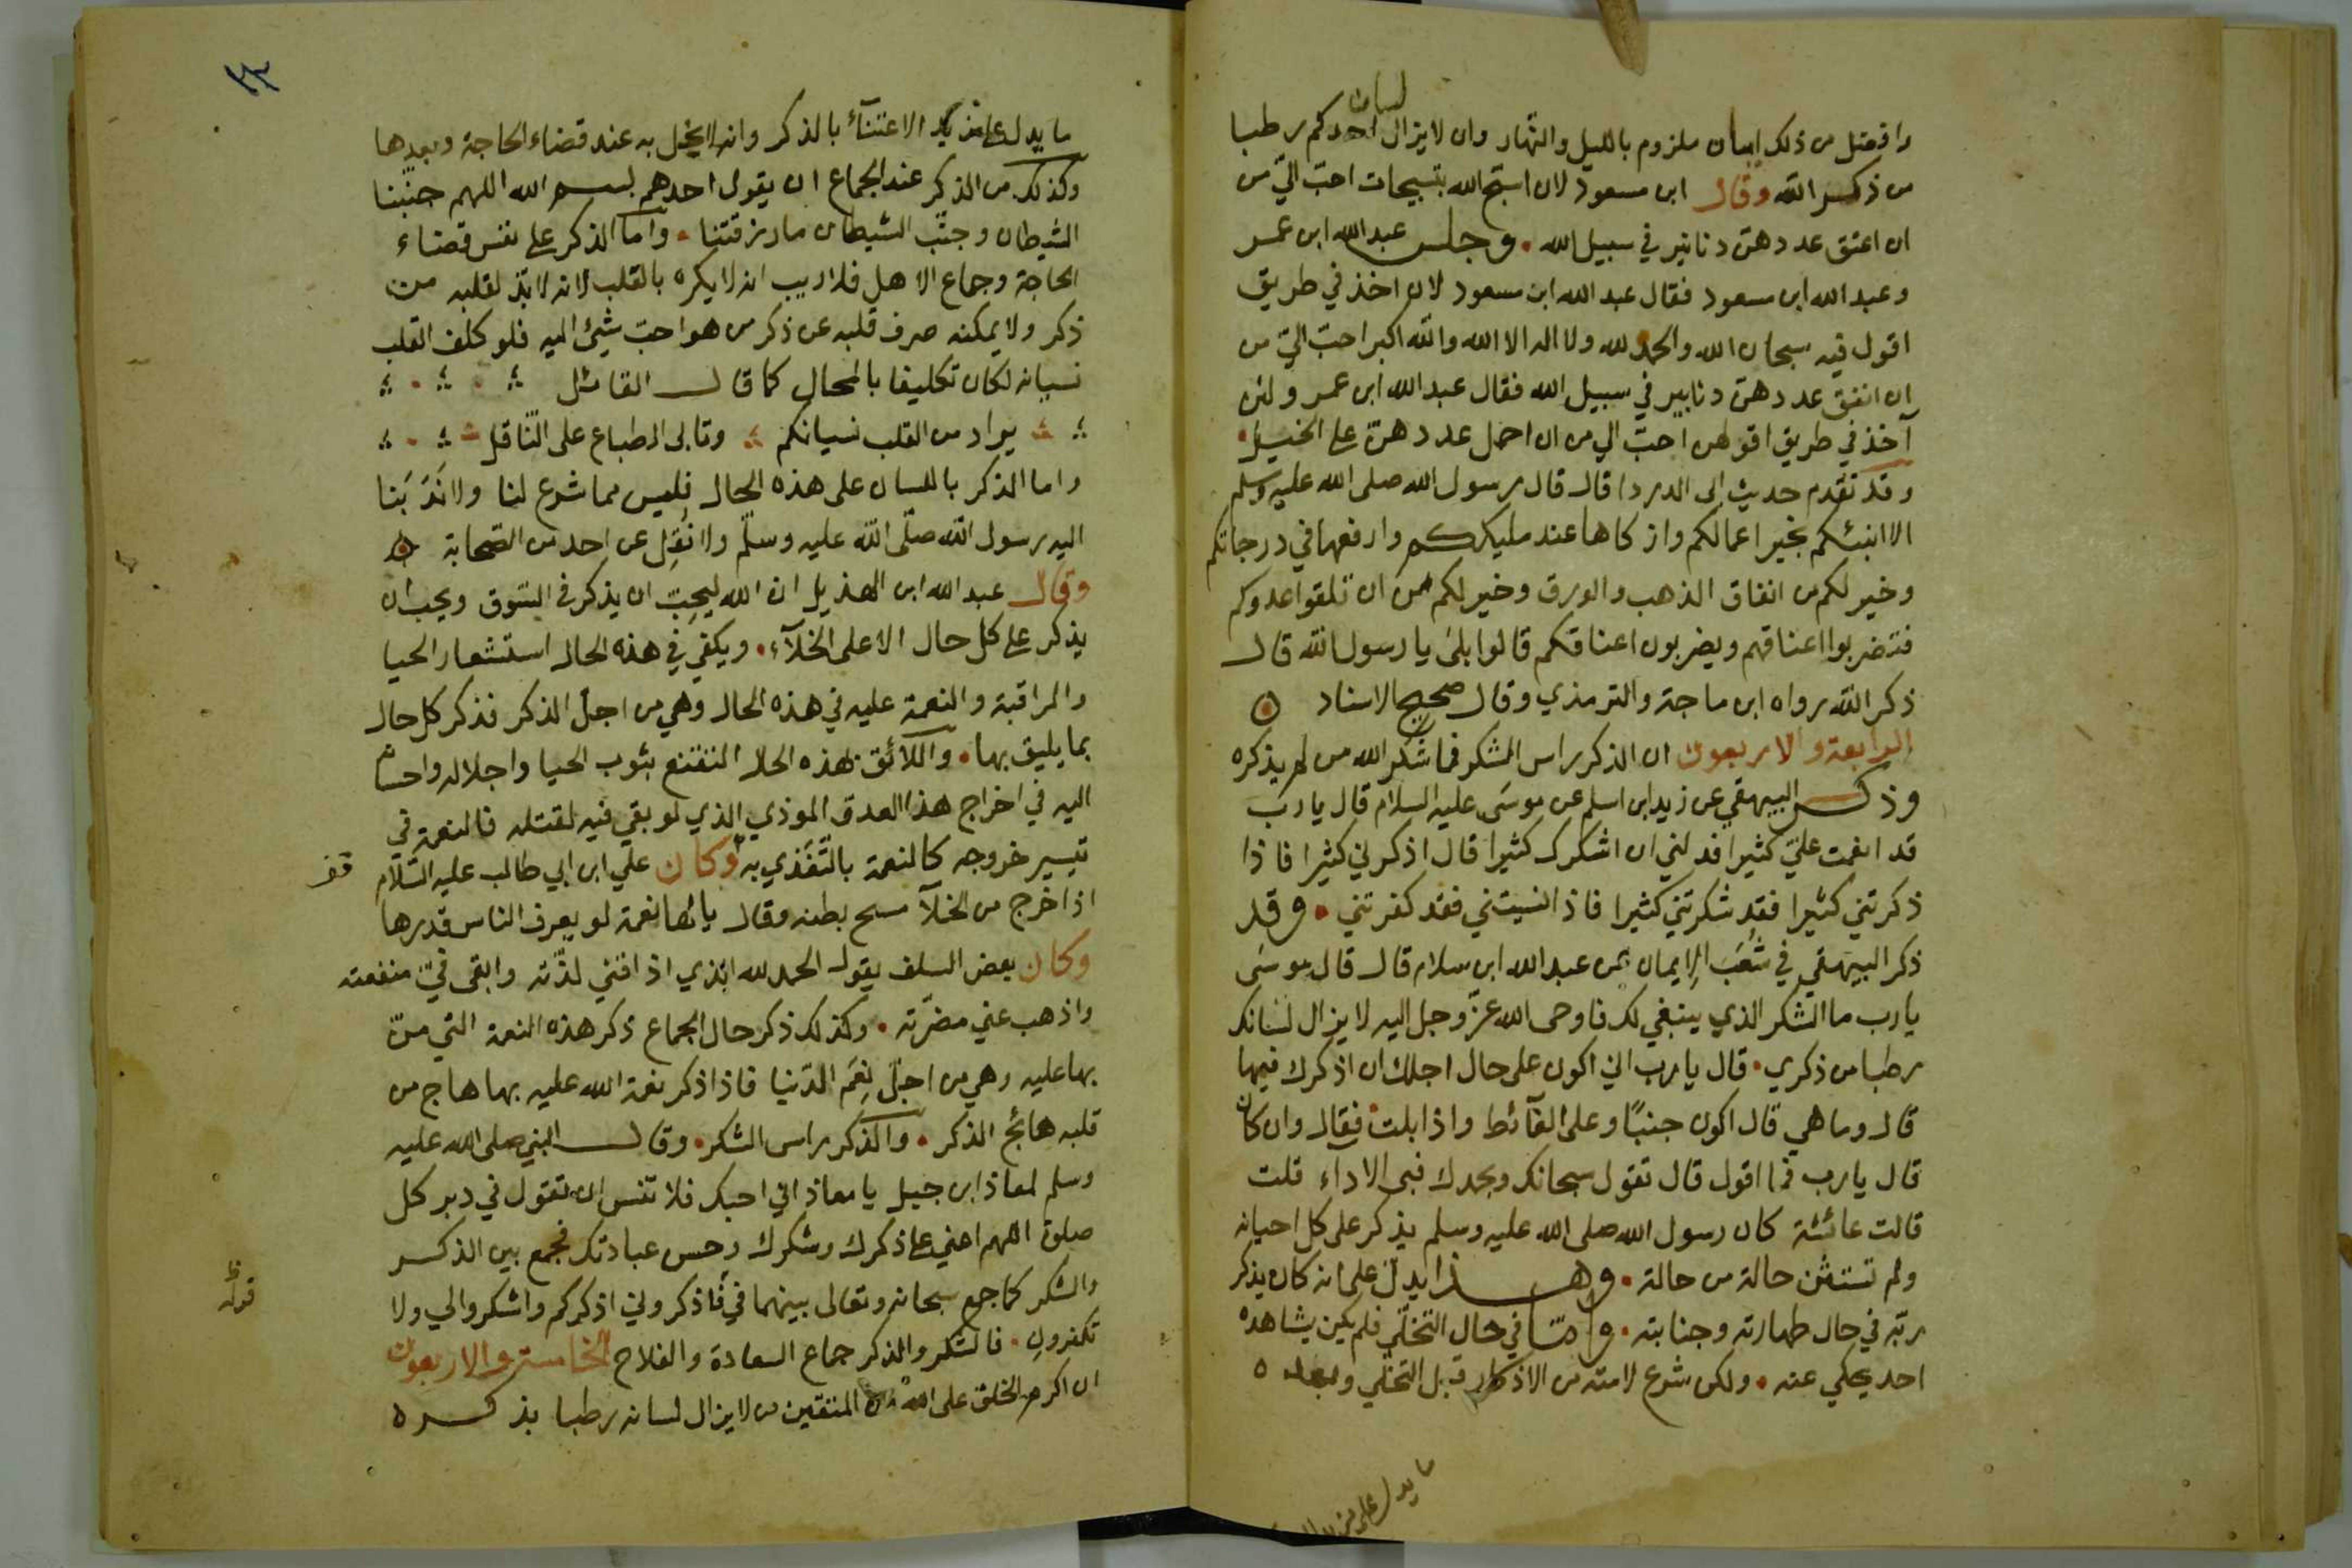 وافضل من ذلك ايمان ملزوم بالليل والنهار وان لا يزال لسان احدكم رطبا
من ذكر الله وقال ابن مسعود لان اسبح الله بتسبيحات احبّ اليّ من
ان اعتق عددهنّ دنانير في سبيل الله . وجلس عبد الله ابن عمر
وعبد الله ابن مسعود فقال عبد الله ابن مسعود لان اخذ في طريق
اقول فيه سبحان الله والحمد لله ولا اله الا الله والله اكبر احبّ اليّ من
ان انفق عددهنّ دنانير في سبيل الله فقال عبد الله ابن عمر ولئن
آخذ في طريق اقولهن احبّ الي من ان احمل عددهنّ على الخيل .
وقد تقدم حديث ابى الدردا قال قال رسول الله صلى الله عليه وسلم
الا انبئكم بخير اعمالكم وازكاها عند مليككم وارفعها في درجاتكم
وخير لكم من انفاق الذهب والورق وخير لكم من ان تلقوا عدوكم
فتضربوا اعناقهم ويضربون اعناقكم قالوا بلى يا رسول الله قال
ذكر الله رواه ابن ماجة والترمذي وقال صحيح الاسناد
الرابعة والاربعون ان الذكر راس الشكر فما شكر الله من لم يذكره
وذكر البيهقي عن زيد ابن اسلم عن موسى عليه السلام قال يا رب
قد انعمت عليّ كثيرا فدلني ان اشكرك كثيرا قال اذكرني كثيرا فاذا
ذكرتني كثيرا فقد شكرتني كثيرا فاذا نسيتني فقد كفرتني . وقد
ذكر البيهقي في شُعَب الايمان عن عبد الله ابن سلام قال قال موسى
يا رب ما الشكر الذي ينبغي لك فاوحى الله عزّ وجل اليه لا يزال لسانك
رطبا من ذكري . قال يا رب اني اكون على حال اجلك ان اذكرك فيها
قال وما هي قال اكون جنبًا وعلى الغآئط واذا بلت فقال وان كان
قال يا رب فما اقول قال تقول سبحانك وبحمدك فنجى الاداء قلت
قالت عائشة كان رسول الله صلى الله عليه وسلم يذكر على كل احيانه
ولم تستثن حالة من حالة . وهذا يدل على انه كان يذكر
ربّه في حال طهارته وجنابته . وامّا في حال التخلّي فلم يكن يشاهده
احد يحكي عنه . ولكن شرع لامته من الاذكار قبل التخلّي وبعده
ما يدل على مزيد
٢٣
ما يدل على مزيد الاعتنآء بالذكر وانه لا يخل به عند قضاء الحاجة وبعدها
وكذلك من الذكر عند الجماع ان يقول احدهم بسم الله اللهم جنّبنا
الشيطان وجنّب الشيطان ما رزقتنا . واما الذكر على نفس قضاء
الحاجة وجماع الاهل فلا ريب انه لا يكره بالقلب لانه لا بدّ لقلبه من
ذكر ولا يمكنه صرف قلبه عن ذكر من هو احبّ شيئ اليه فلو كلف القلب
نسيانه لكان تكليفا بالمحال كما قال القائل
يراد من القلب نسيانكم وتابى الطباع على النّاقل
واما الذكر باللسان على هذه الحال فليس مما شرع لنا ولا نَدَبَنا
اليه رسول الله صلّى الله عليه وسلّم ولا نُقِل عن احد من الصّحابة
وقال عبد الله ابن الهذيل ان الله ليحبّ ان يذكر في السّوق ويحب ان
يذكر على كل حال الا على الخلآء . ويكفي في هذه الحال استشعار الحيا
والمراقبة والنعمة عليه في هذه الحال وهي من اجلّ الذكر فذكر كل حال
بما يليق بها . واللآئق بهذه الحال التقنع بثوب الحيا واجلاله واحسانه
اليه في اخراج هذا العدوّ الموذي الذي لو بقي فيه لقتله فالنعمة في
تيسير خروجه كالنعمة بالتّغذي به وكان علي ابن ابي طالب عليه السّلام
قف
اذا خرج من الخلآ مسح بطنه وقال يا لها نعمة لو يعرف الناس قدرها
وكان بعض السلف يقول الحمد لله الذي اذاقني لذّته وابقى فيّ منفعته
واذهب عني مضرّته . وكذلك ذكر حال الجماع ذكر هذه النعمة التي منّ
بها عليه وهي من اجلّ نِعَم الدّنيا فاذا ذكر نعمة الله عليه بها هاج من
قلبه هائج الذكر . والذكر راس الشكر . وقال النبي صلى الله عليه
وسلم لمعاذ ابن جبل يا معاذ اني احبك فلا تنس ان تقول في دبر كل
صلوة اللهم اعني على ذكرك وشكرك وحسن عبادتك فجمع بين الذكر
والشكر كما جمع سبحانه وتعالى بينهما في فاذكروني اذكركم واشكروا لي ولا
تكفرون . فالشكر والذكر جماع السعادة والفلاح الخامسة والاربعون
ان اكرم الخلق على الله من المتقين من لا يزال لسانه رطبا بذكره